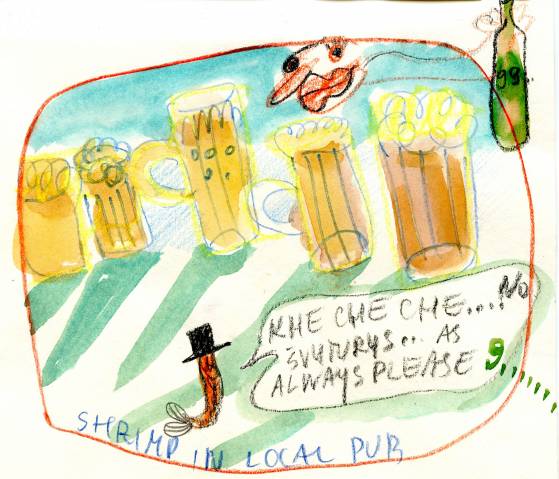 99..
KHE CHE CHE.... NO
ŠVYTURYS... AS
ALWAYS PLEASE 9....
SHRIMP IN LOCAL PUB